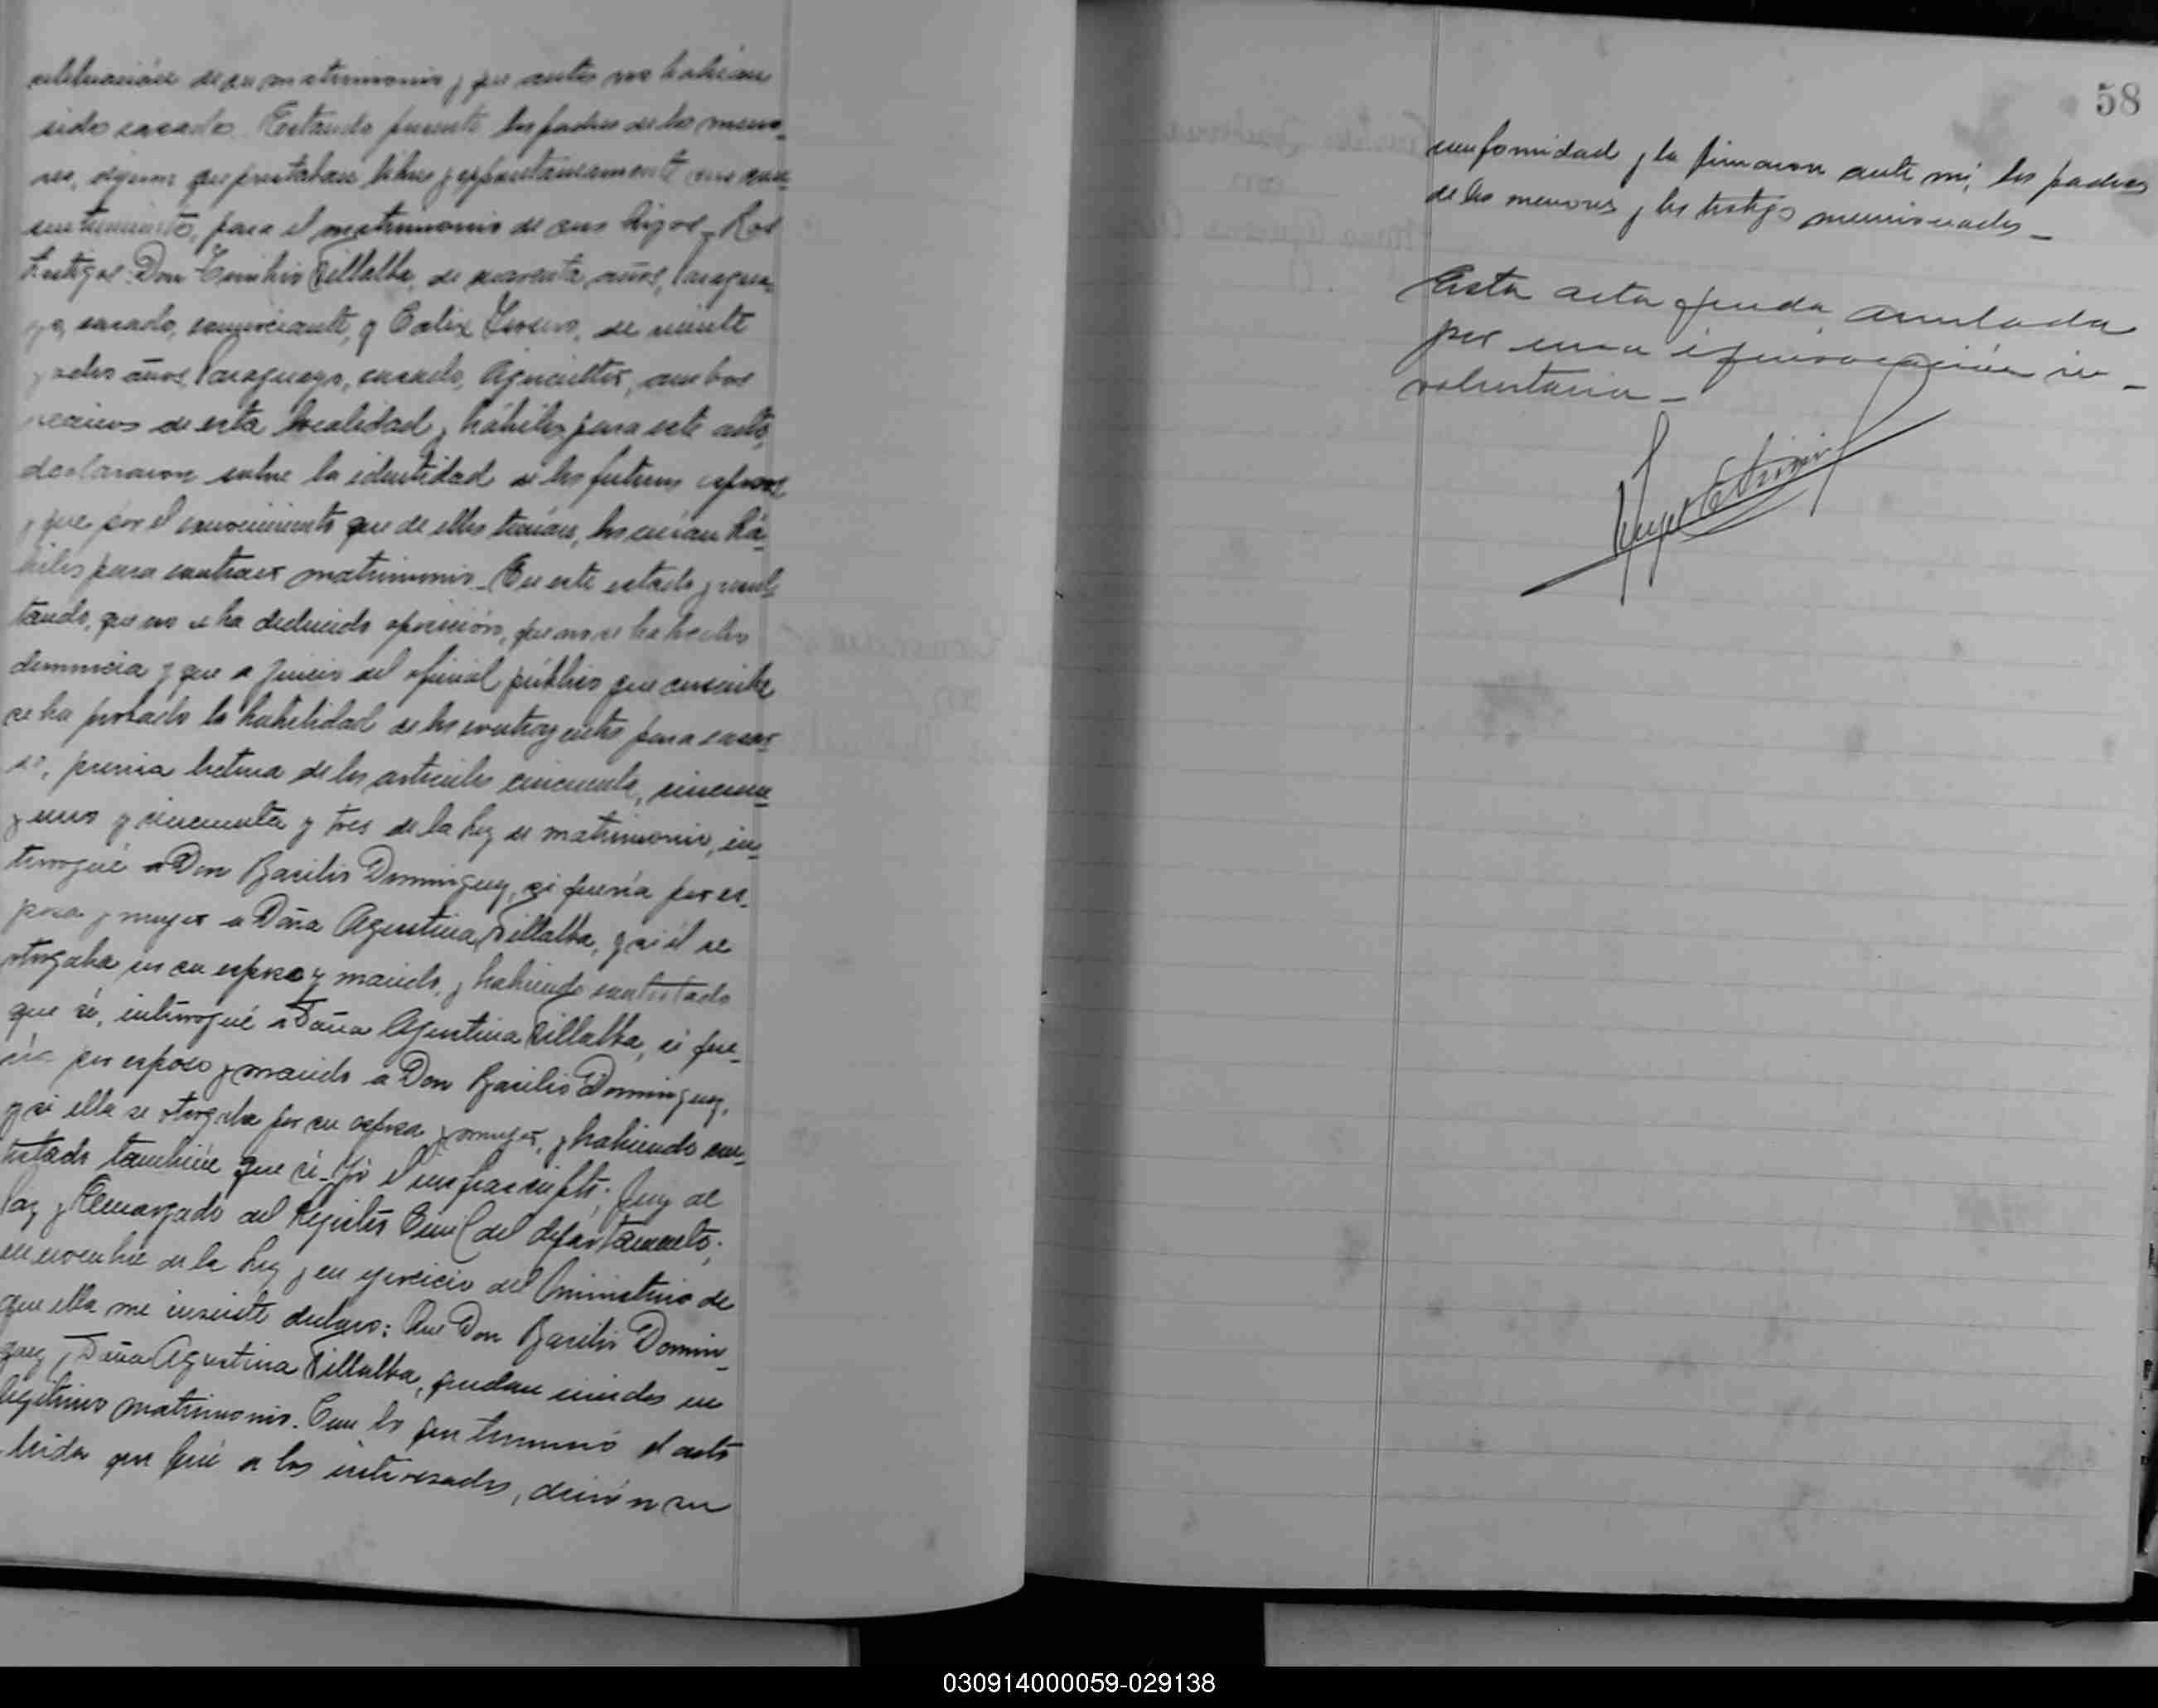 celebración de su matrimonio y que antes no habían
sido casados. Estando presente los padres de los meno-
res, dijeron que prestaban libre y espontáneamente su con-
sentimiento, para el matrimonio de sus hijos. Los
testigos: Don Emilio Villalba, de cuarenta años, Paragua-
yo, casado, comerciante, y de veinte
y ocho años, Paraguayo, casado, Agricultor, ambos
vecinos de esta localidad y hábiles para este acto,
declararon sobre la identidad de los futuros esposos
y que por el conocimiento que de ellos tenían, los creían há-
biles para contraer matrimonio. En este estado y resul-
tando, que no se ha deducido oposición, que no se ha hecho
denuncia y que a juicio del oficial público que suscribe
se ha probado la habilidad de los contrayentes para casar-
se, previa lectura de los artículos cincuenta, cincuen-
y uno y cincuenta y tres de la ley de matrimonio, in-
terrogué a Don Basilio Dominguez, si quería por es-
posa y mujer a Doña Agustina Villalba, y si él se
otorgaba por su esposo y marido, y habiendo contestado
que sí, interrogué a Doña Agustina Villalba, si que-
ría por esposo y marido a Don Basilio Dominguez,
y si ella se otorgaba por su esposa y mujer, y habiendo con-
testado también que sí. Yó el infrascripto; Juez de
Paz y Encargado del Registro Civil del departamento;
en nombre de la ley y en ejercicio del ministerio de
que ella me inviste declaro: Que Don Basilio Domin-
guez y Doña Agustina Villalba, quedan unidos en
legítimo matrimonio. Con lo que terminó el acto
leida que fué a los interesados, dieron su
58
conformidad y la firmaron ante mí, los padres
de los menores y los testigos mencionados _
Esta acta queda anulada
por una equivocación in-
voluntaria _
030914000059-029138